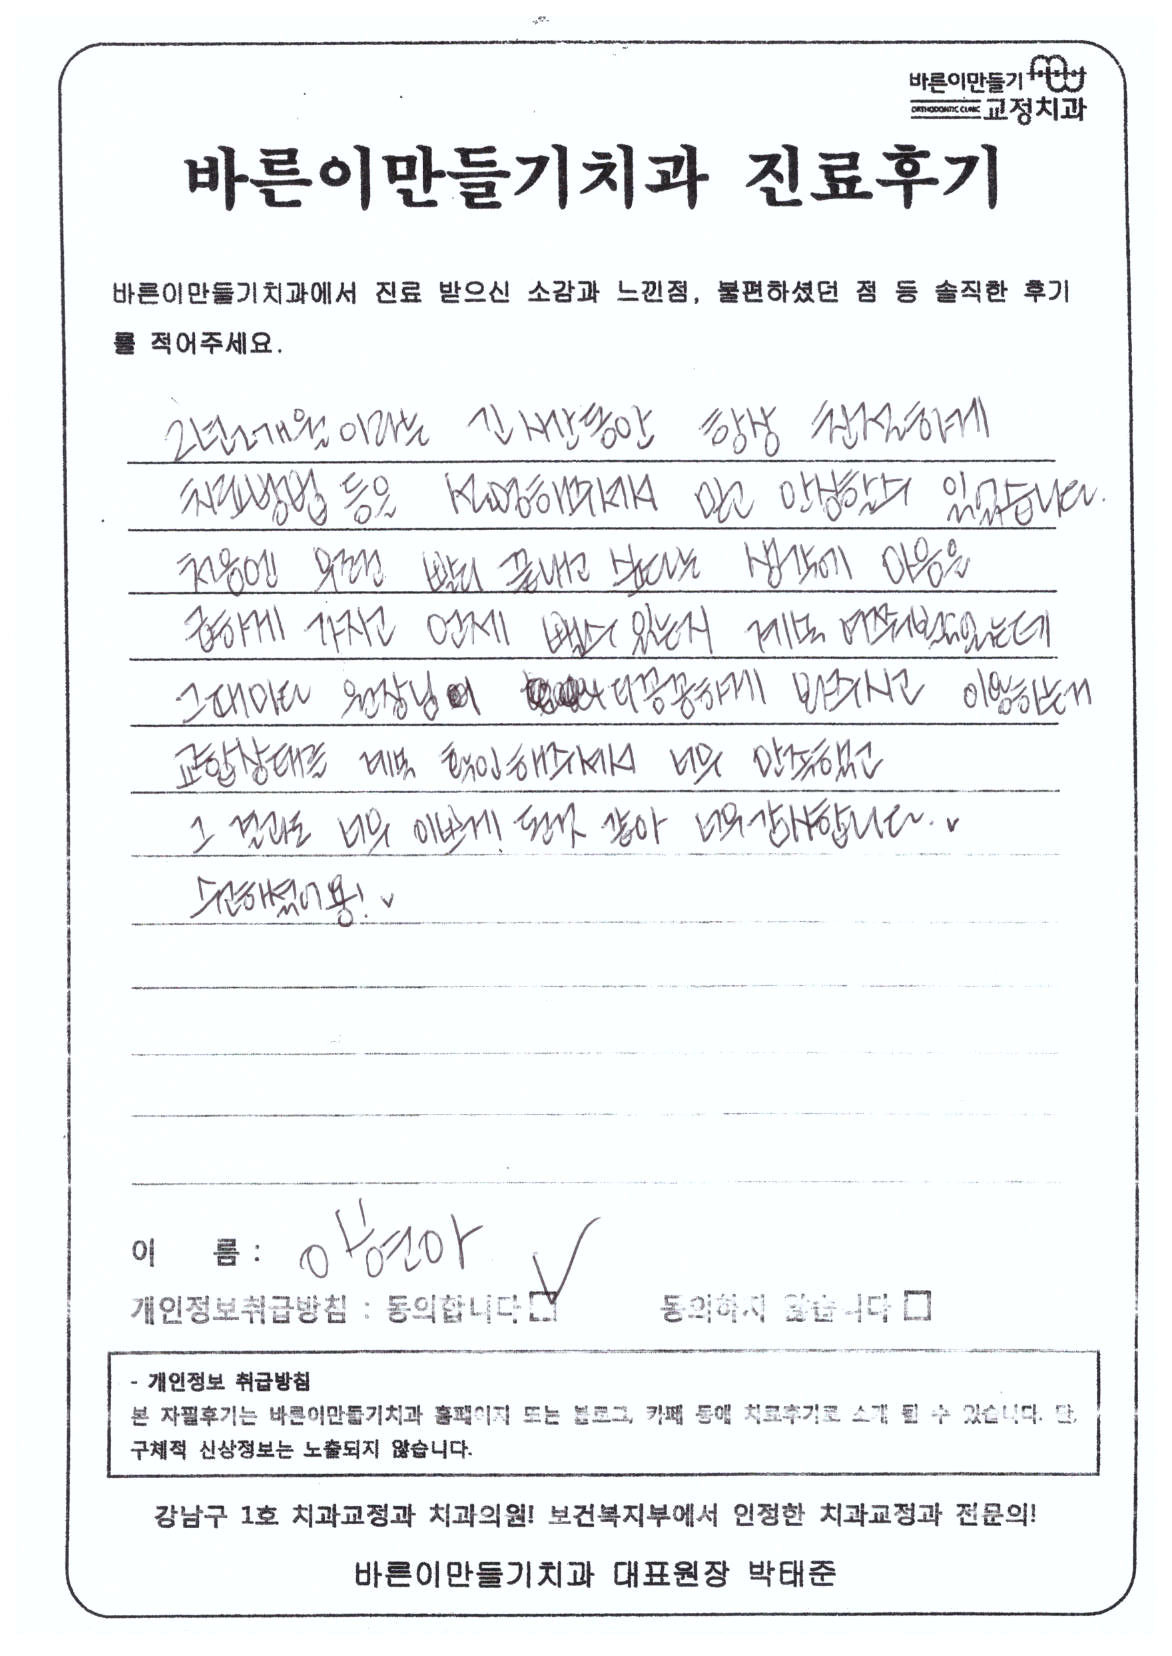 바른이만들기
ORTHODONTIC CLINIC 교정치과
바른이만들기치과 진료후기
바른이만들기치과에서 진료 받으신 소감과 느낀점, 불편하셨던 점 등 솔직한 후기
를 적어주세요.
2년2개월이라는 긴 시간동안 항상 친절하게
치료방법 등을 설명해주셔서 믿고 안심할수 있었습니다.
처음엔 무조건 빨리 끝내고 싶다는 생각에 마음을
급하게 가지고 언제 뺄수 있는지 계속 여쭤봤었는데
그때마다 원장님이 더 꼼꼼하게 봐주시고 이용하는거
교합상태를 계속 확인해주셔서 너무 만족했고
그 결과도 너무 이쁘게! 된것 같아 너무감사합니다.
수고하셨어용!
이 름 :
개인정보취급방침 : 동의합니다 동의하지 않습니다
- 개인정보 취급방침
본 자필후기는 바른이만들기치과 홈페이지 또는 블로그, 카페 등에 치료후기로 소개 될 수 있습니다. 단,
구체적 신상정보는 노출되지 않습니다.
강남구 1호 치과교정과 치과의원! 보건복지부에서 인정한 치과교정과 전문의!
바른이만들기치과 대표원장 박태준